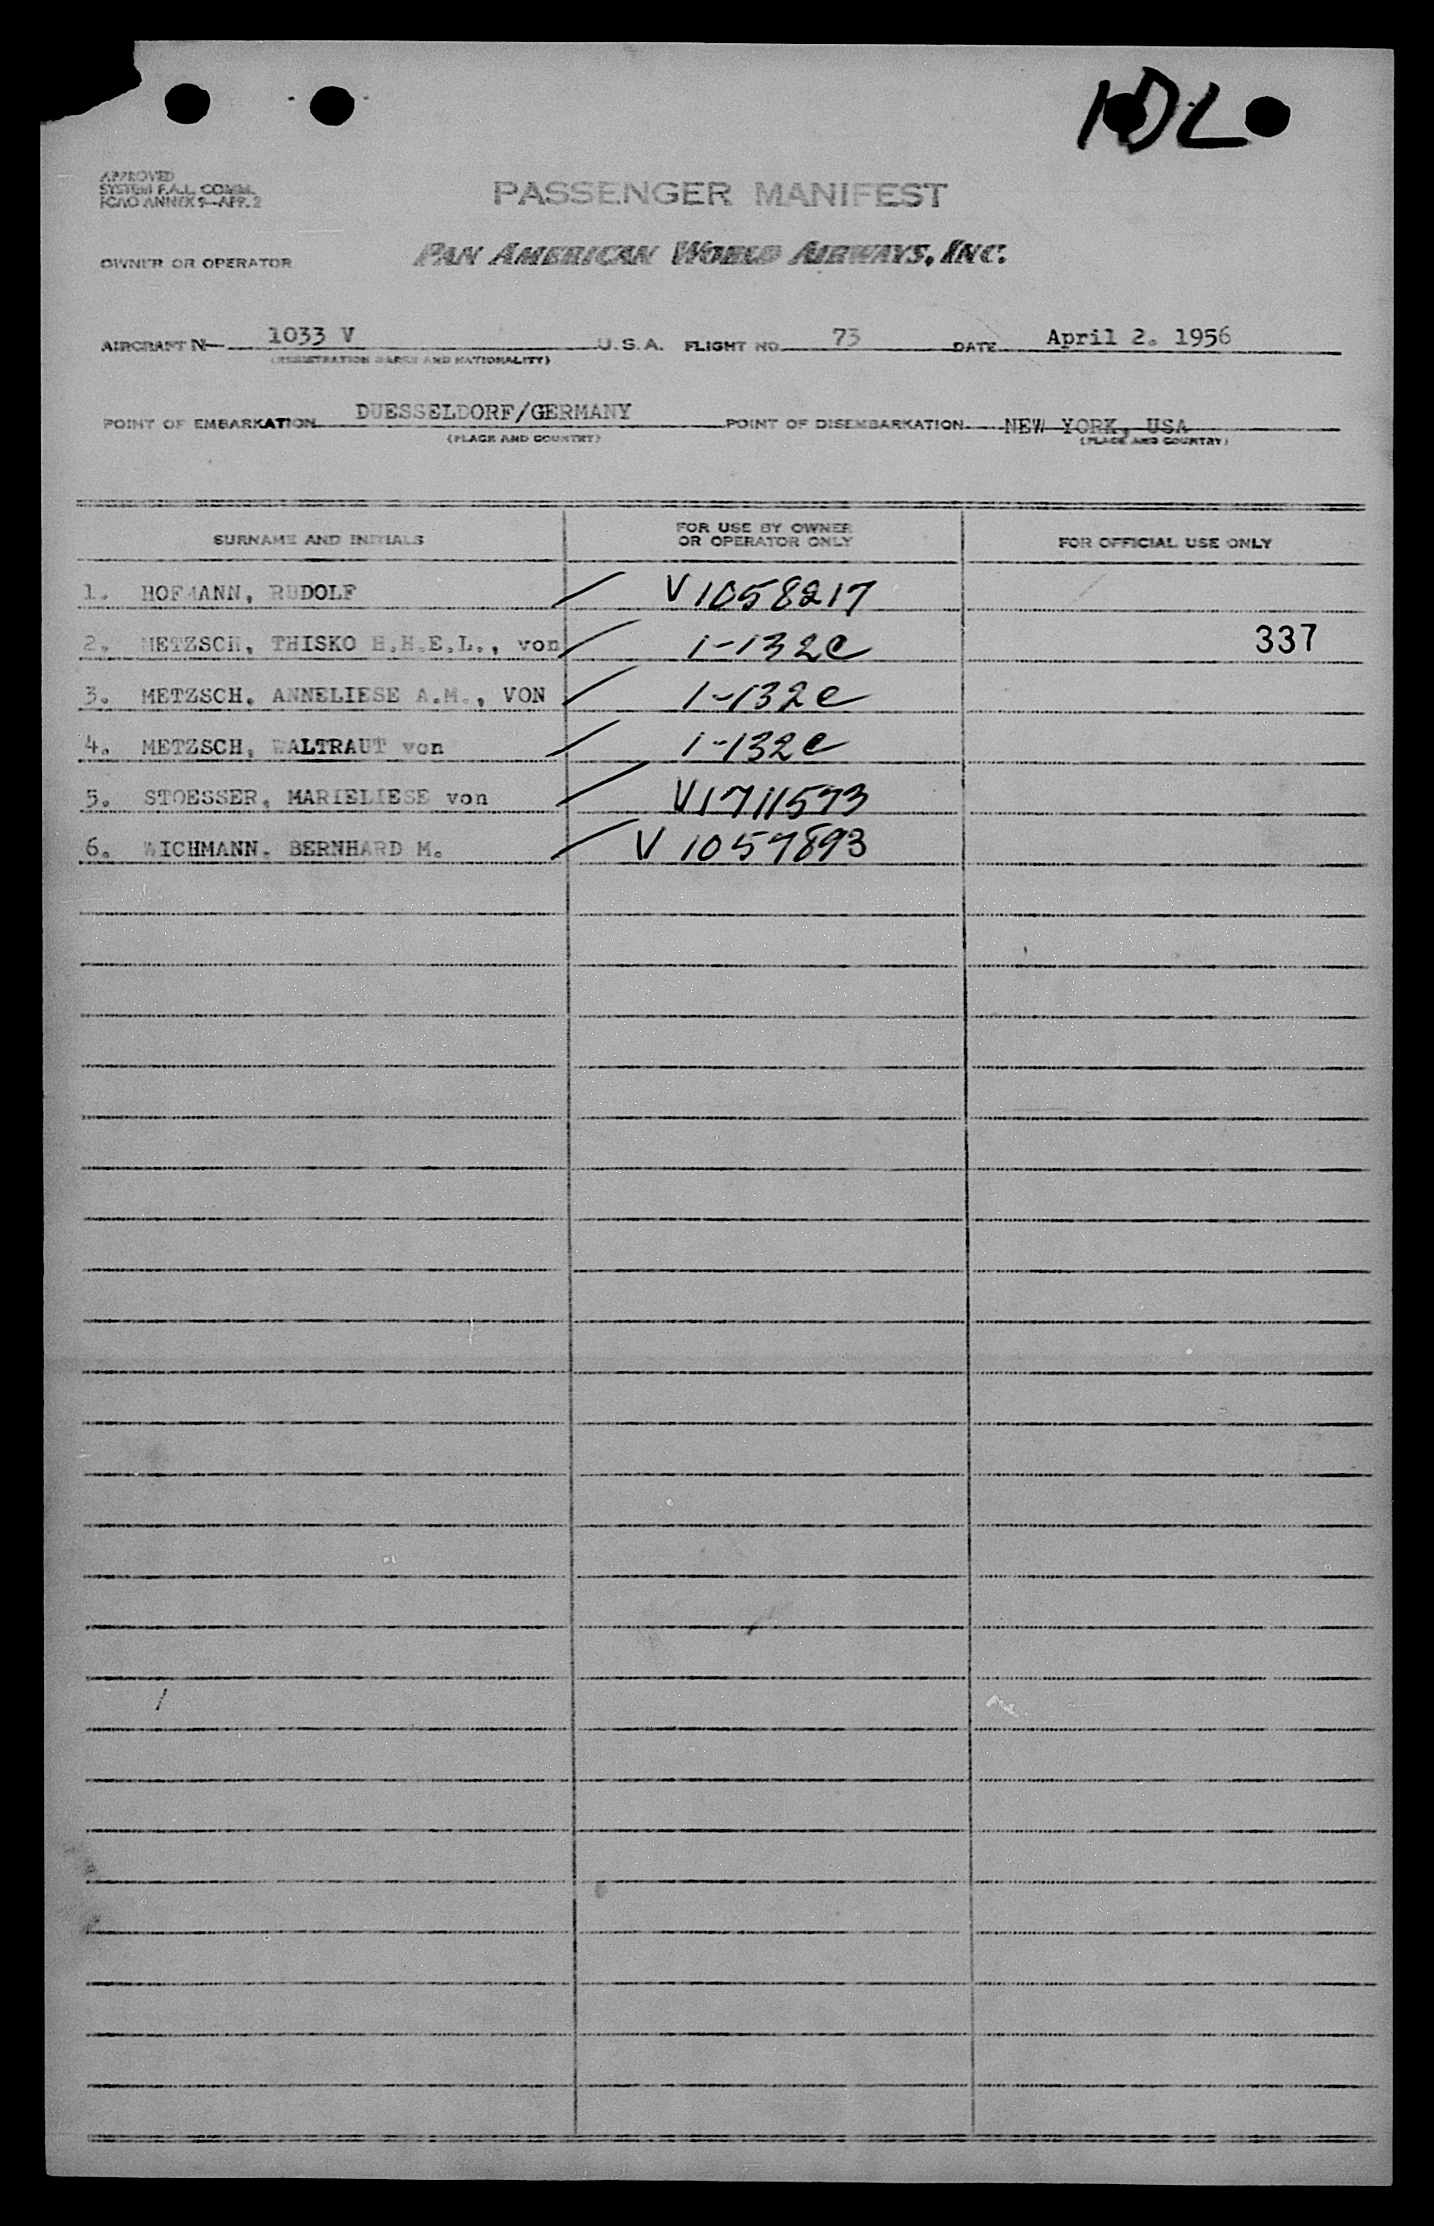 IDL
APPROVED
SYSTEM F.A.L. COMM.
ICAO ANNEX 9—APP. 2
PASSENGER MANIFEST
OWNER OR OPERATOR PAN AMERICAN WORLD AIRWAYS, INC.
AIRCRAFT N— 1033 V U.S.A. FLIGHT NO. 73 DATE April 2. 1956
(REGISTRATION MARKS AND NATIONALITY)
POINT OF EMBARKATION DUESSELDORF/GERMANY POINT OF DISEMBARKATION NEW YORK, USA
(PLACE AND COUNTRY) (PLACE AND COUNTRY)
SURNAME AND INITIALS
FOR USE BY OWNER
OR OPERATOR ONLY
FOR OFFICIAL USE ONLY
1. HOFMANN, RUDOLF V1058217
2. METZSCH, THISKO H.H.E.L., von 1-132c 337
3. METZSCH, ANNELIESE A.M., VON 1-132c
4. METZSCH, WALTRAUT von 1-132c
5. STOESSER, MARIELIESE von V1711573
6. WICHMANN, BERNHARD M. V 1057893